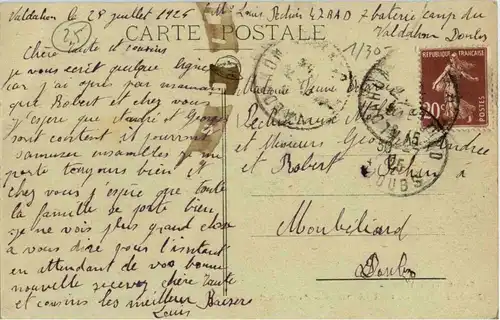 Valdahon le 28 juillet 1925
Louis Pechin 47 RAD 7 batterie camp du
Valdahon Doubs
25
CARTE POSTALE
1/30
Chère Tante et cousins
je vous écrit quelque lignes
car j'ai apris par maman
que Robert et chez vous
j'espère que André et Georges
sont content il pourront
s'amuser ensembles je me
porte toujours bien et
chez vous j'espère que toute
la famille se porte bien
je ne vois plus grand chose
a vous dire pour l'instant
en attendant de vos bonne
nouvelle recevez chère Tante
et cousins les meilleur Baisers
Louis
Madame Jeune
Pechin
et Messieurs Georges André
et Robert Pechin a
Montbéliard
Doubs
REPUBLIQUE FRANÇAISE
20c
POSTES
DOUBS